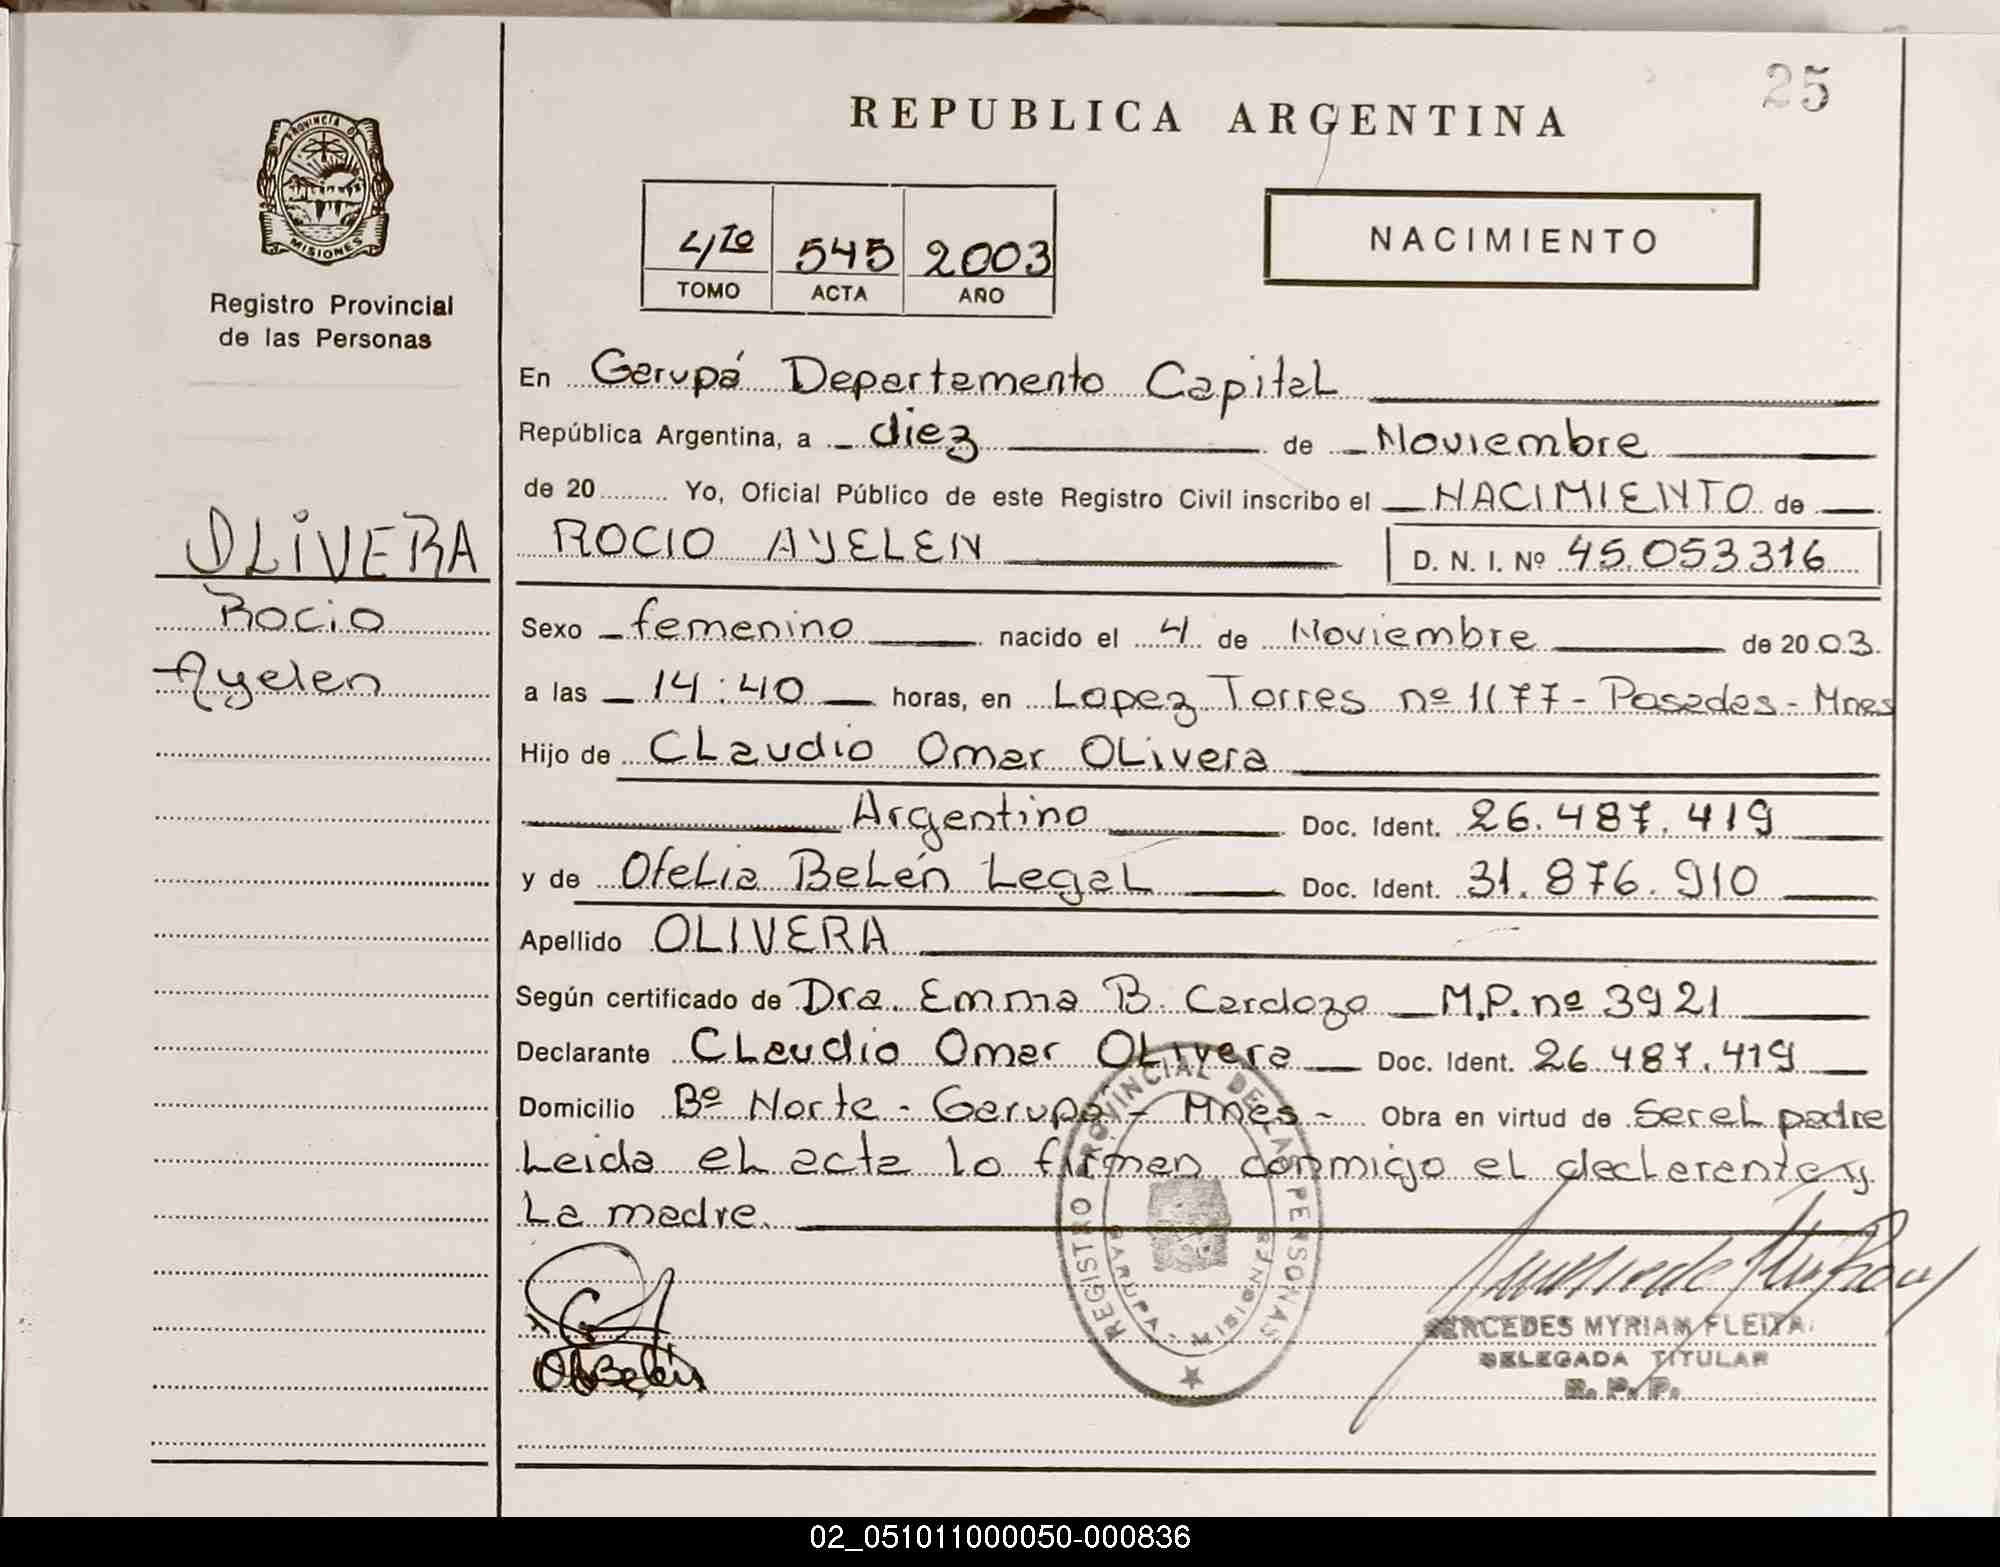 25
REPUBLICA ARGENTINA
PROVINCIA DE
MISIONES
Registro Provincial
de las Personas
4to 545 2003
TOMO ACTA AÑO
NACIMIENTO
En Garupá Departamento Capital
República Argentina, a diez de Noviembre
de 20 Yo, Oficial Público de este Registro Civil inscribo el NACIMIENTO de
ROCIO AYELEN D. N. I. Nº 45.053.316
OLIVERA
Rocio
Ayelen
Sexo femenino nacido el 4 de Noviembre de 2003.
a las 14:40 horas, en Lopez Torres nº 1177 - Posadas - Mnes
Hijo de Claudio Omar Olivera
Argentino Doc. Ident. 26.487.419
y de Ofelia Belén Legal Doc. Ident. 31.876.910
Apellido OLIVERA
Según certificado de Dra. Emma B. Cardozo M.P. nº 3921
Declarante Claudio Omar Olivera Doc. Ident. 26.487.419
Domicilio Bº Norte - Garupá - Mnes - Obra en virtud de ser el padre
Leida el acta lo firman conmigo el declarante y
La madre.
REGISTRO PROVINCIAL DE LAS PERSONAS
GARUPA
MERCEDES MYRIAM FLEITA
DELEGADA TITULAR
R. P. P.
02_051011000050-000836